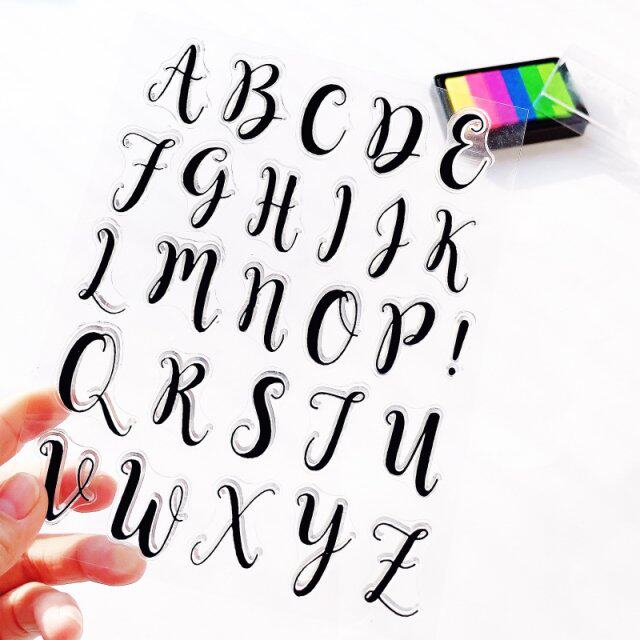 A B C D E
F G H I J K
L M N O P !
Q R S T U
V W X Y Z